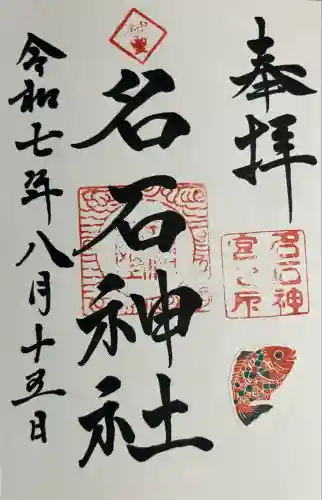 奉拝
名石神社
令和七年八月十五日
名石神
宮之印